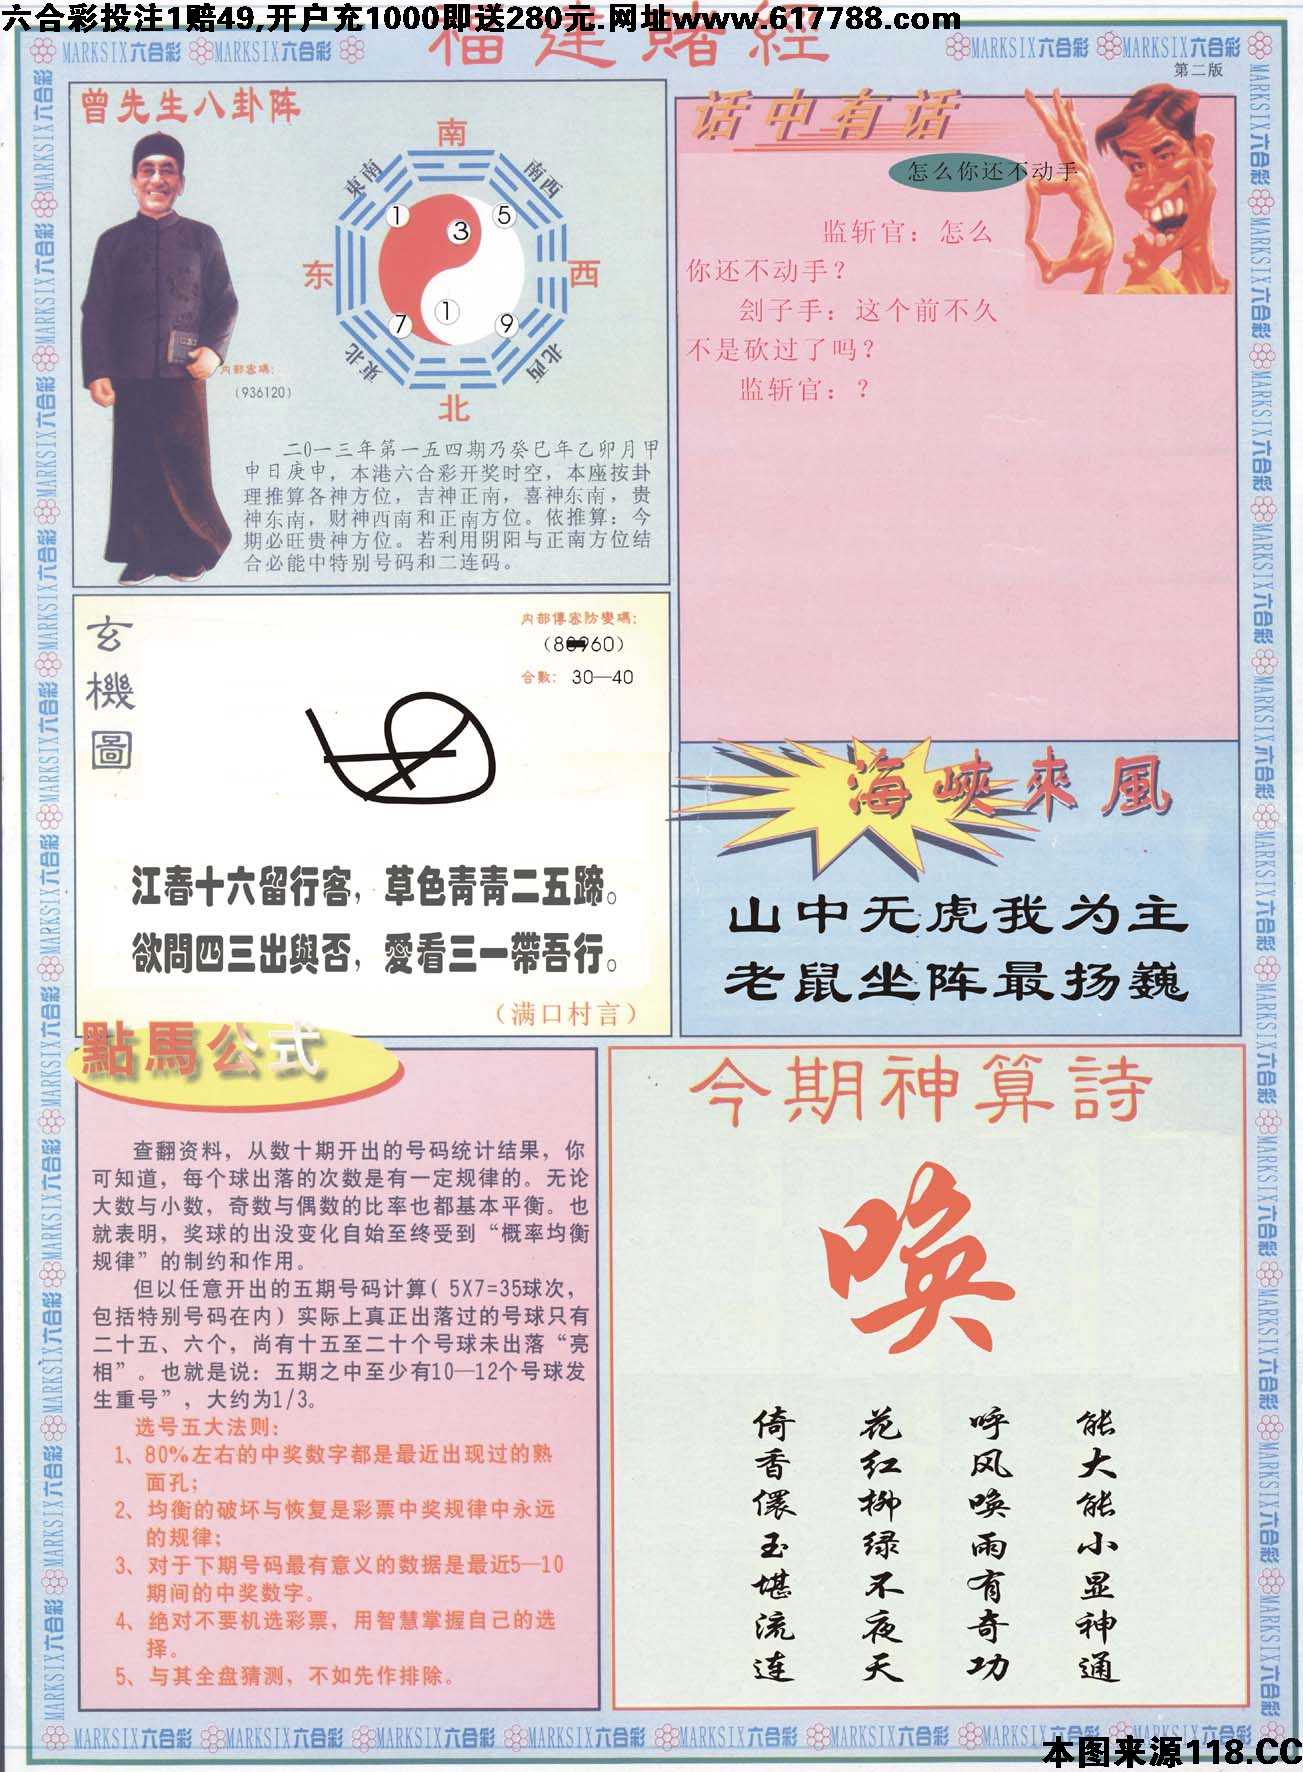 六合彩投注1赔49,开户充1000即送280元.网址www.617788.com
福建賭經
MARKSIX六合彩 MARKSIX六合彩
MARKSIX六合彩 MARKSIX六合彩
第二版
曾先生八卦阵
南
東南
南西
1
3
5
东
西
7
1
9
東北
北西
北
内部密碼：
（936120）
二0一三年第一五四期乃癸巳年乙卯月甲
申日庚申，本港六合彩开奖时空，本座按卦
理推算各神方位，吉神正南，喜神东南，贵
神东南，财神西南和正南方位。依推算：今
期必旺贵神方位。若利用阴阳与正南方位结
合必能中特别号码和二连码。
话中有话
怎么你还不动手
监斩官：怎么
你还不动手？
刽子手：这个前不久
不是砍过了吗？
监斩官：？
玄機圖
内部傳密防變碼：
合數： 30—40
江春十六留行客，草色青青二五蹄。
欲問四三出與否，愛看三一帶吾行。
（满口村言）
海峽來風
山中无虎我为主
老鼠坐阵最扬巍
點馬公式
查翻资料，从数十期开出的号码统计结果，你
可知道，每个球出落的次数是有一定规律的。无论
大数与小数，奇数与偶数的比率也都基本平衡。也
就表明，奖球的出没变化自始至终受到“概率均衡
规律”的制约和作用。
但以任意开出的五期号码计算（5X7=35球次，
包括特别号码在内）实际上真正出落过的号球只有
二十五、六个，尚有十五至二十个号球未出落“亮
相”。也就是说：五期之中至少有10—12个号球发
生重号”，大约为1/3。
选号五大法则：
1、80%左右的中奖数字都是最近出现过的熟
面孔；
2、均衡的破坏与恢复是彩票中奖规律中永远
的规律；
3、对于下期号码最有意义的数据是最近5—10
期间的中奖数字。
4、绝对不要机选彩票，用智慧掌握自己的选
择。
5、与其全盘猜测，不如先作排除。
今期神算詩
唤
能大能小显神通
呼风唤雨有奇功
花红柳绿不夜天
倚香偎玉堪流连
MARKSIX六合彩 MARKSIX六合彩 MARKSIX六合彩 MARKSIX六合彩 MARKSIX六合彩 MARKSIX六合彩 MARKSIX六合彩 MARKSIX六合彩
本图来源118.CC